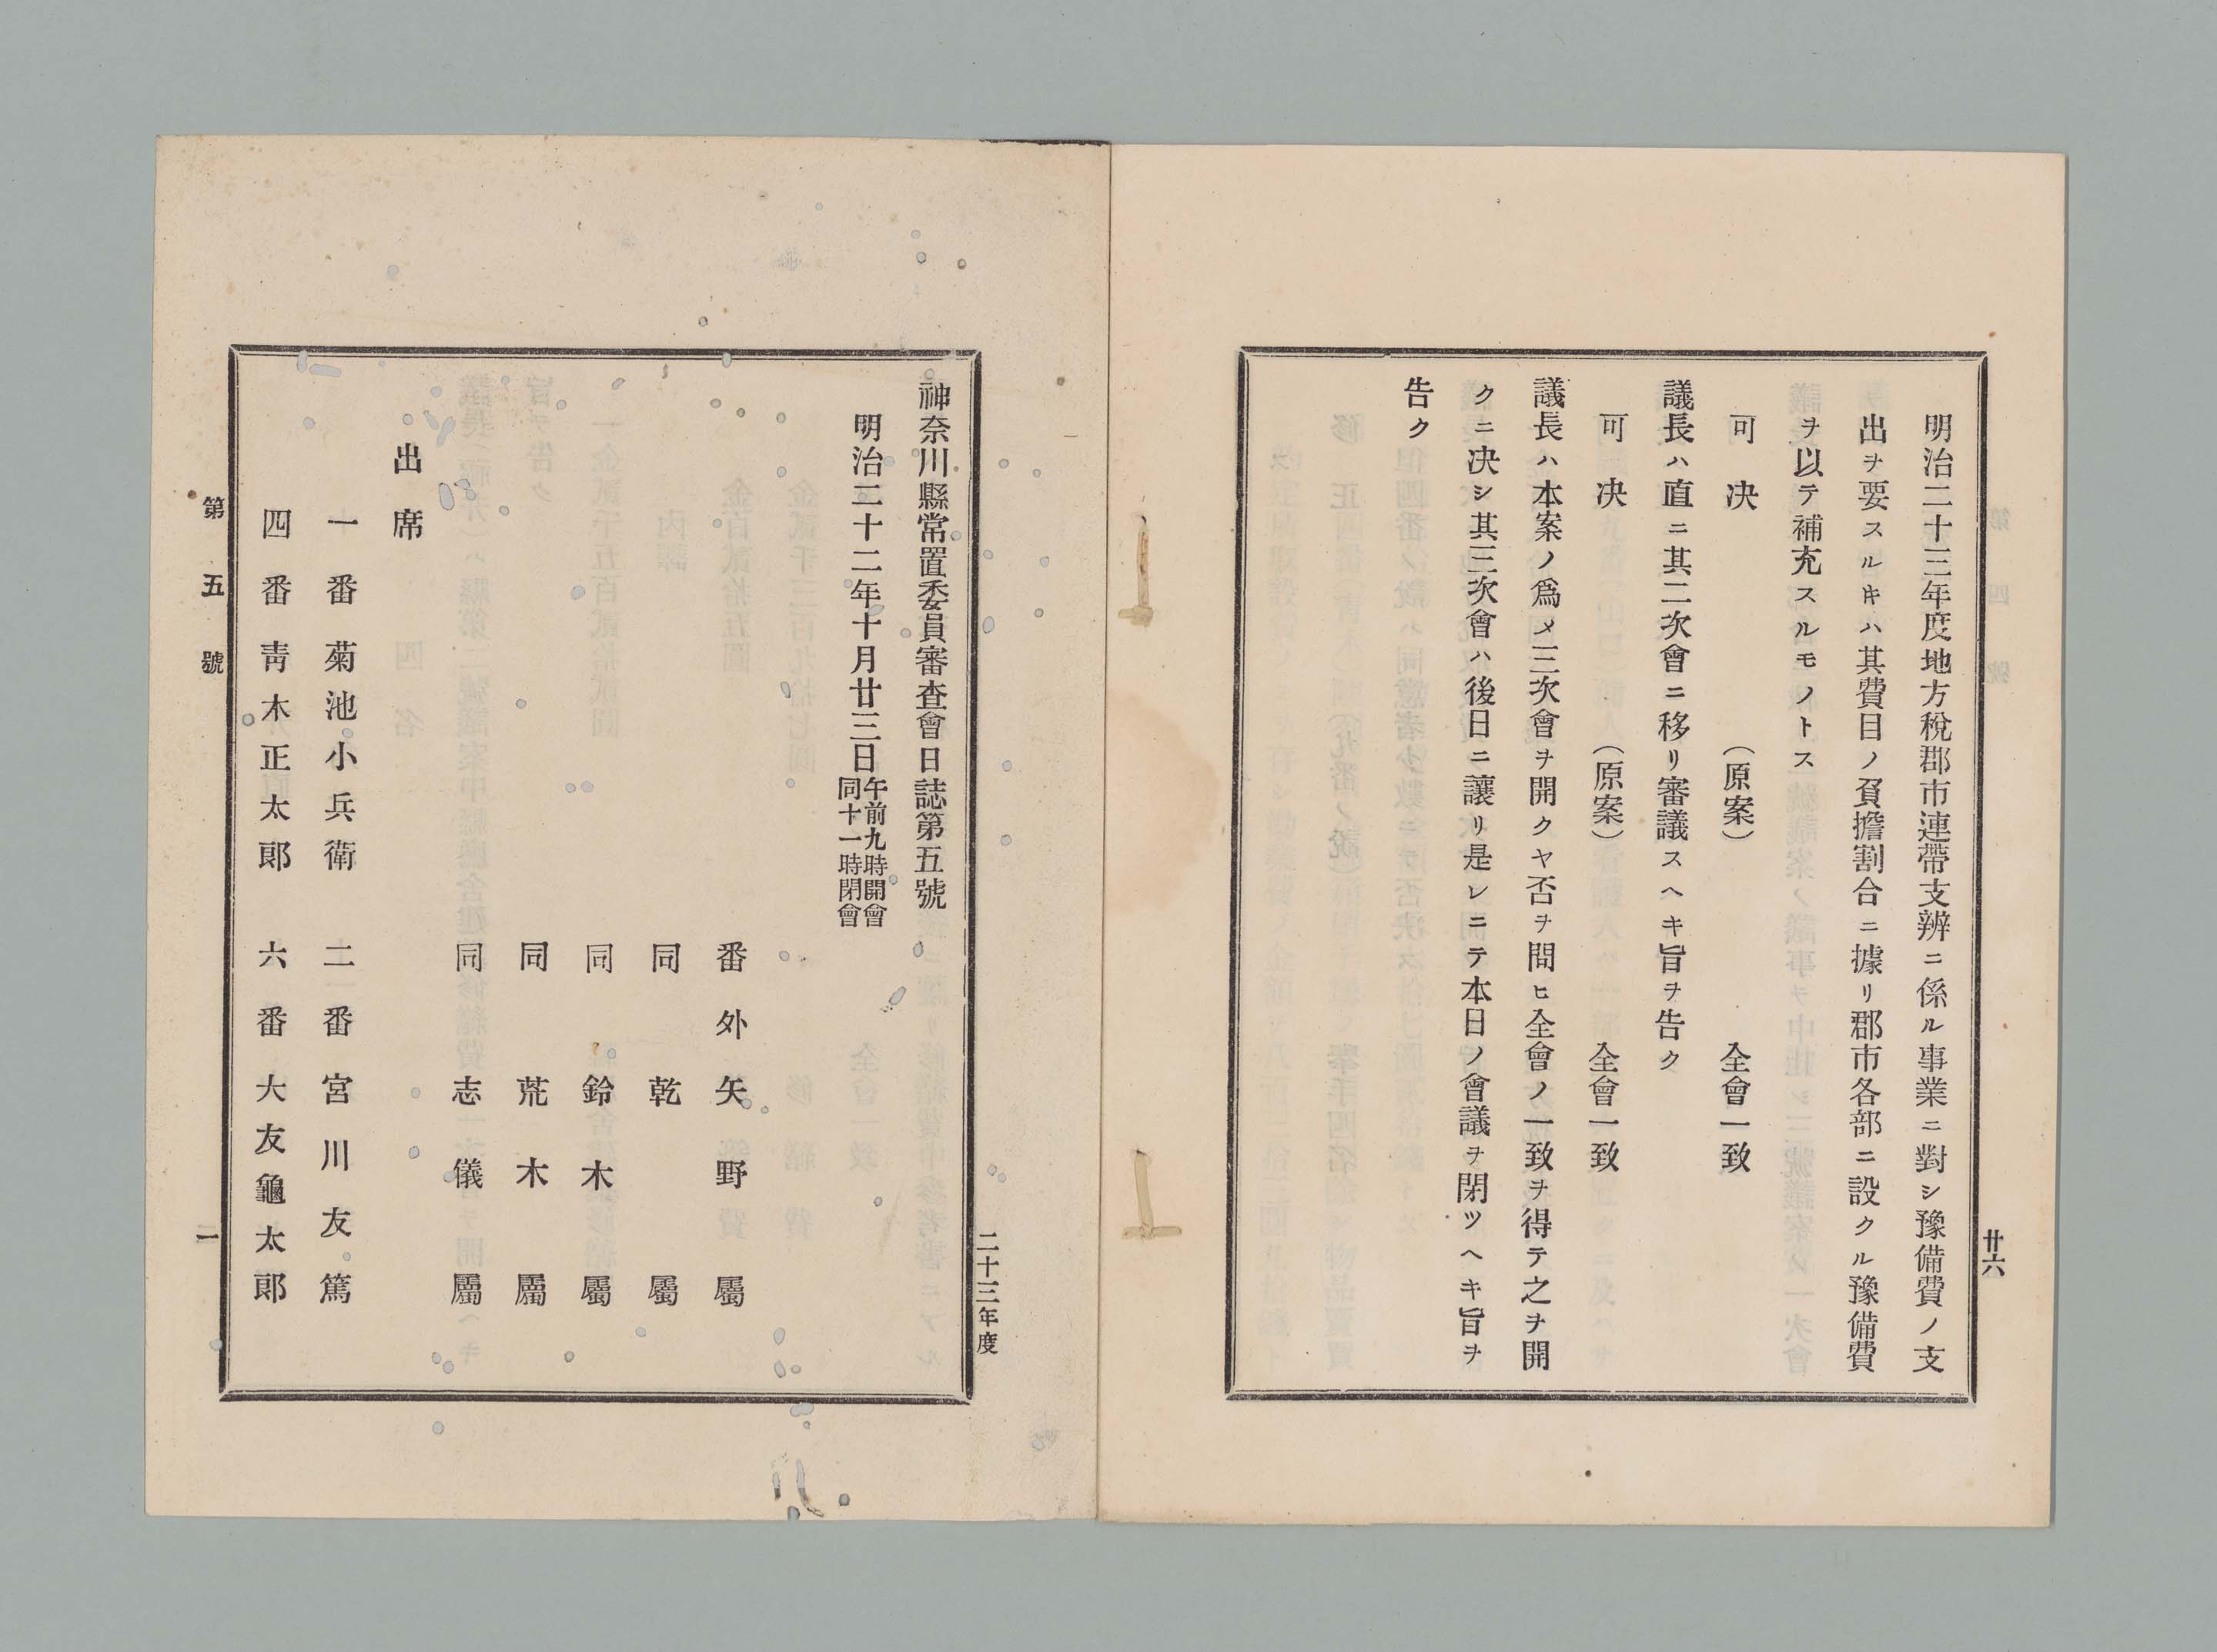 廿六
明治二十三年度地方稅郡市連帶支辨ニ係ル事業ニ對シ豫備費ノ支
出ヲ要スルキハ其費目ノ負擔割合ニ據リ郡市各部ニ設クル豫備費
ヲ以テ補充スルモノトス
可決 (原案) 全會一致
議長ハ直ニ其二次會ニ移リ審議スヘキ旨ヲ告ク
可決 (原案) 全會一致
議長ハ本案ノ爲メ三次會ヲ開クヤ否ヲ問ヒ全會ノ一致ヲ得テ之ヲ開
クニ决シ其三次會ハ後日ニ讓リ是レニテ本日ノ會議ヲ閉ツヘキ旨ヲ
告ク
二十三年度
神奈川縣常置委員審査會日誌第五號
明治二十二年十月廿三日午前九時開會
同十一時閉會
番外矢野屬
同乾屬
同鈴木屬
同荒木屬
同志儀屬
出席
一番菊池小兵衛 二番宮川友篤
四番靑木正太郞 六番大友龜太郞
第五號 一